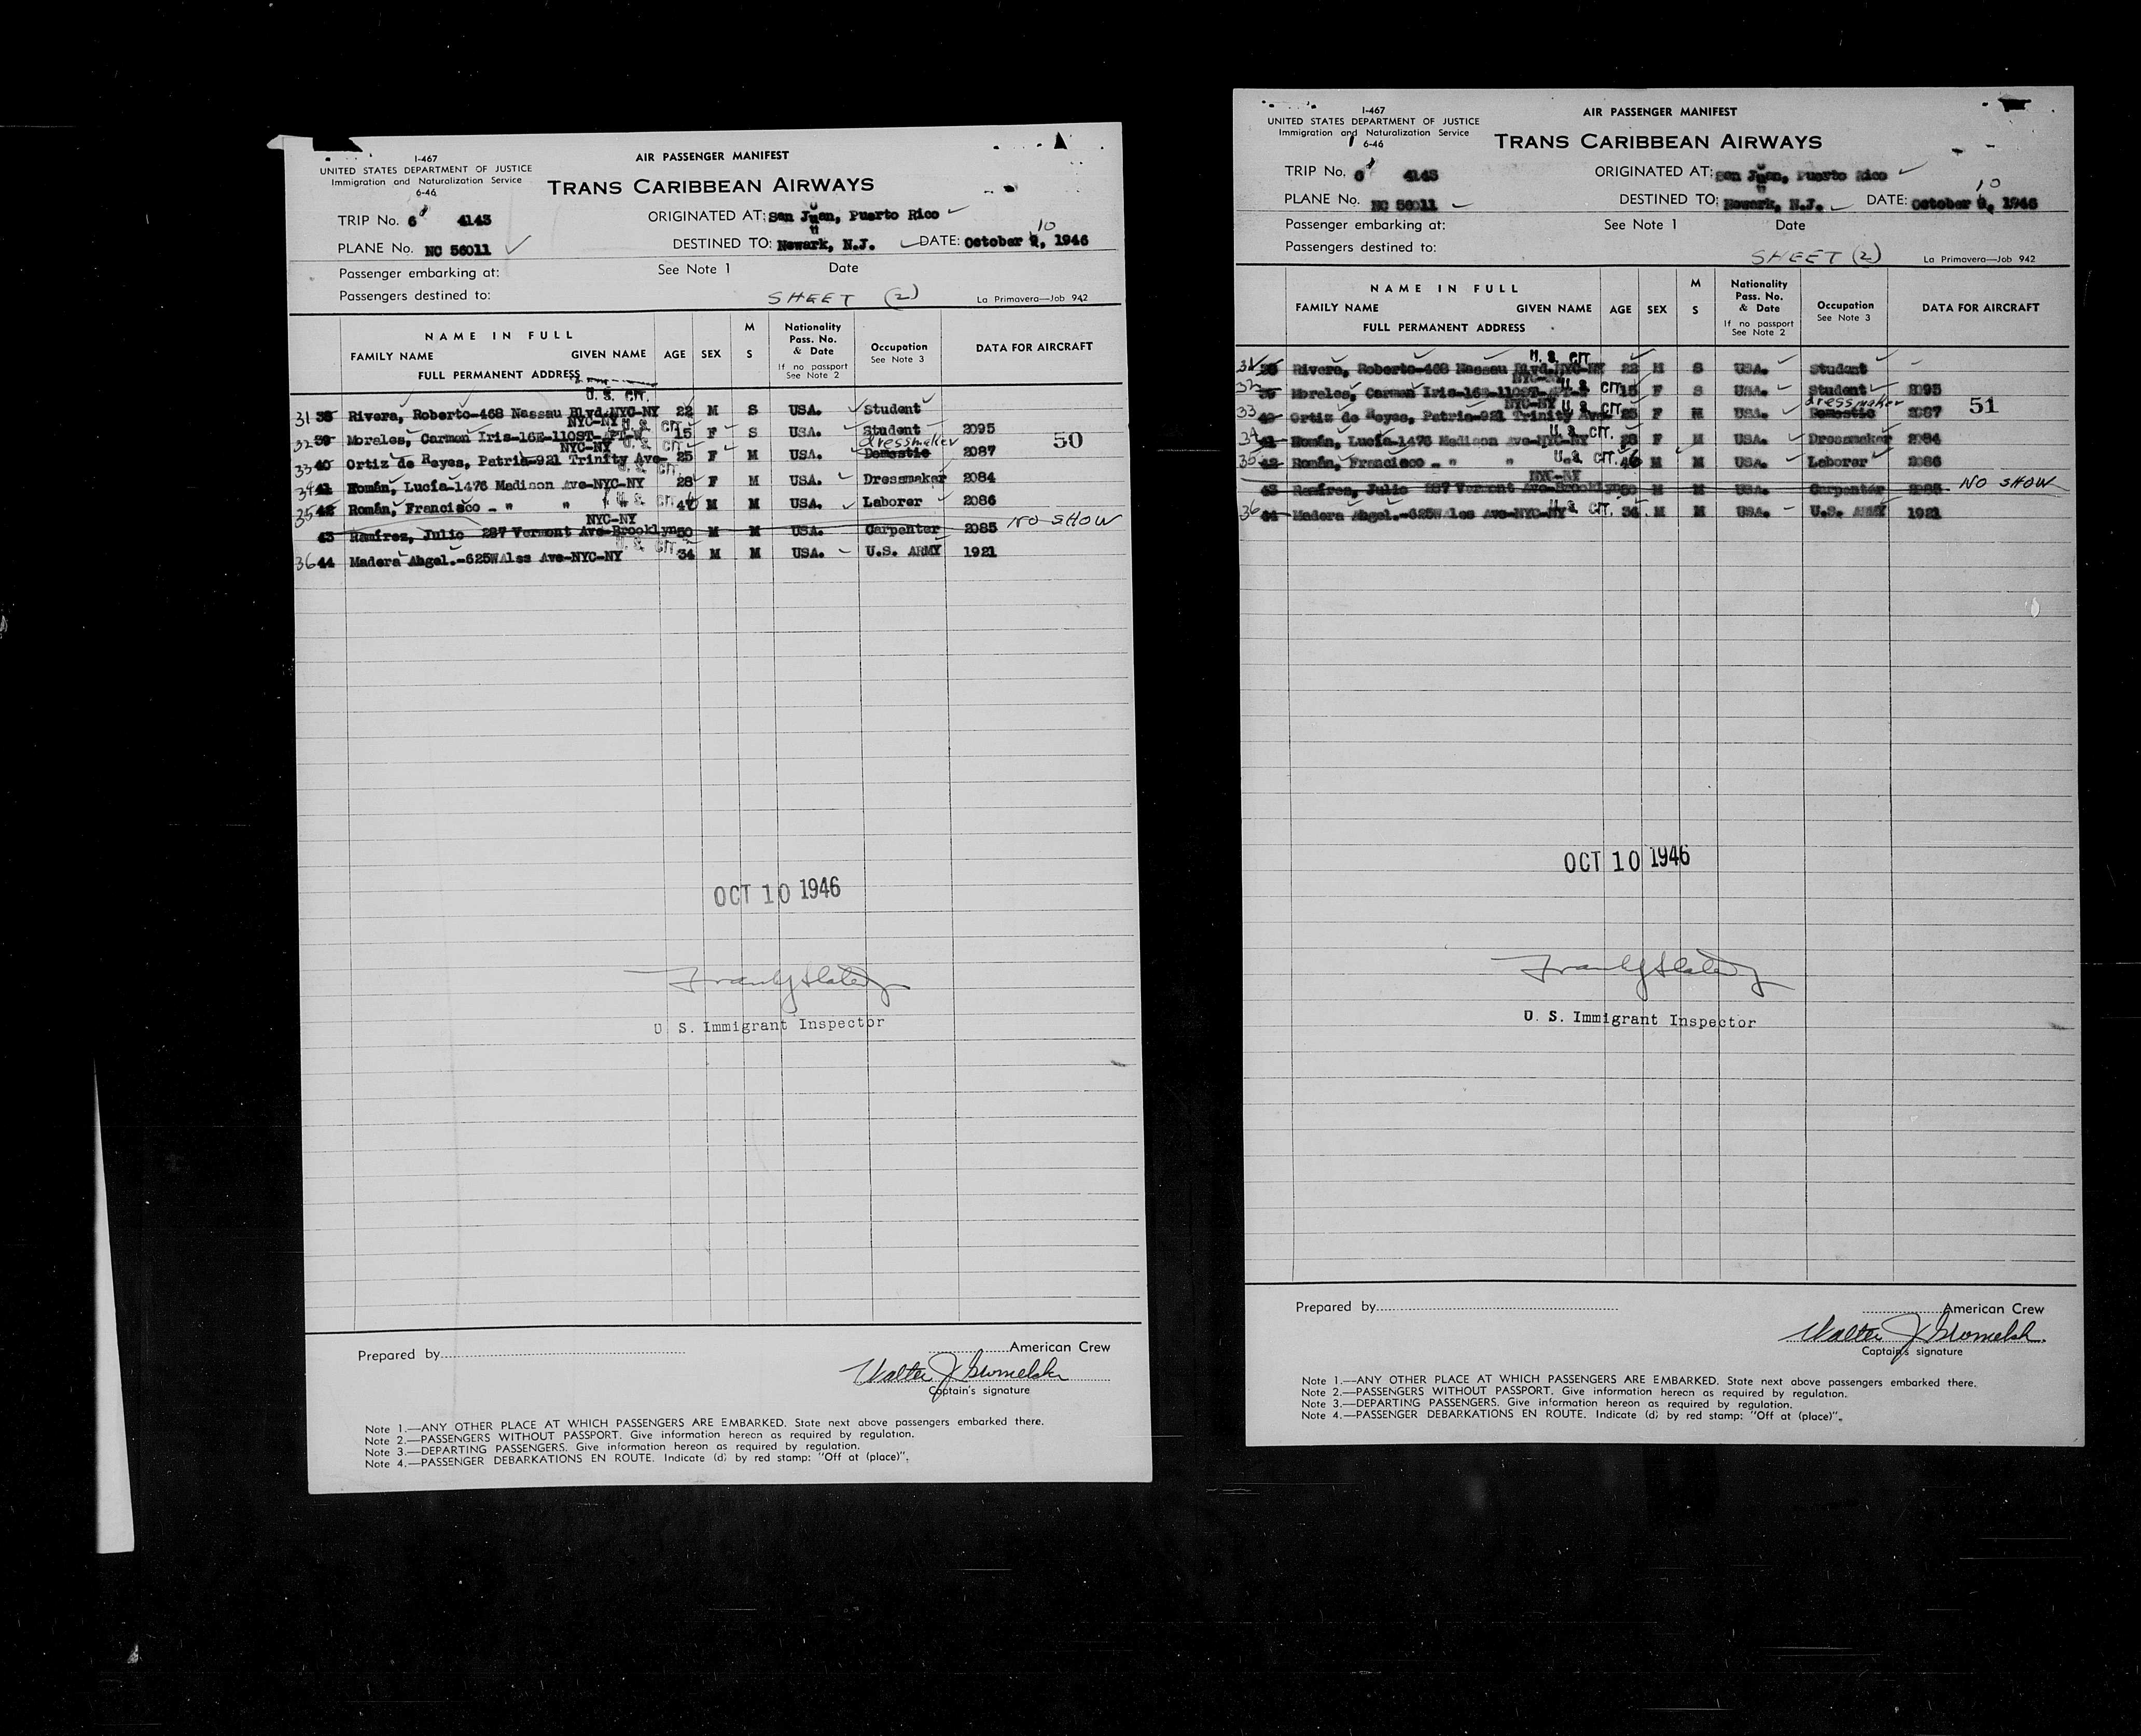 I-467
UNITED STATES DEPARTMENT OF JUSTICE
Immigration and Naturalization Service
6-46
AIR PASSENGER MANIFEST
TRANS CARIBBEAN AIRWAYS
TRIP No. 6 4143
ORIGINATED AT: San Juan, Puerto Rico
PLANE No. NC 56011
DESTINED TO: Newark, N.J. DATE: October 9, 1946
10
Passenger embarking at: See Note 1 Date
Passengers destined to: SHEET (2) La Primavera—Job 942
NAME IN FULL
FAMILY NAME GIVEN NAME
FULL PERMANENT ADDRESS
AGE SEX M S
Nationality Pass. No. & Date
If no passport See Note 2
Occupation See Note 3
DATA FOR AIRCRAFT
U. S. CIT.
31 38 Rivera, Roberto-468 Nassau Blvd.NYC-NY 22 M S USA. Student
NYC-NY U. S. CIT.
32 39 Morales, Carmen Iris-162-110ST-APT- 15 F S USA. Student 2095
NYC-NY U. S. CIT. dressmaker
33 40 Ortiz de Reyes, Patria-921 Trinity Ave- 25 F M USA. Domestic 2087
50
U. S. CIT.
34 41 Román, Lucía-1476 Madison Ave-NYC-NY 28 F M USA. Dressmaker 2084
U. S. CIT.
35 42 Román, Francisco - " " M M USA. Laborer 2086
NYC-NY
43 Ramírez, Julio 287 Vermont Ave-Brooklyn 50 M M USA. Carpenter 2085 NO SHOW
U. S. CIT.
36 44 Madera Angel.-625Wales Ave-NYC-NY 34 M M USA. U.S. ARMY 1921
OCT 10 1946
U. S. Immigrant Inspector
Prepared by
American Crew
Walter J
Captain's signature
Note 1.—ANY OTHER PLACE AT WHICH PASSENGERS ARE EMBARKED. State next above passengers embarked there.
Note 2.—PASSENGERS WITHOUT PASSPORT. Give information hereon as required by regulation.
Note 3.—DEPARTING PASSENGERS. Give information hereon as required by regulation.
Note 4.—PASSENGER DEBARKATIONS EN ROUTE. Indicate (d) by red stamp: "Off at (place)".
I-467
UNITED STATES DEPARTMENT OF JUSTICE
Immigration and Naturalization Service
6-46
AIR PASSENGER MANIFEST
TRANS CARIBBEAN AIRWAYS
TRIP No. 6 4143
ORIGINATED AT: San Juan, Puerto Rico
PLANE No. NC 56011
DESTINED TO: Newark, N.J. DATE: October 9, 1946
10
Passenger embarking at: See Note 1 Date
Passengers destined to: SHEET (2) La Primavera—Job 942
NAME IN FULL
FAMILY NAME GIVEN NAME
FULL PERMANENT ADDRESS
AGE SEX M S
Nationality Pass. No. & Date
If no passport See Note 2
Occupation See Note 3
DATA FOR AIRCRAFT
U. S. CIT.
31 38 Rivera, Roberto-468 Nassau Blvd.NYC-NY 22 M S USA. Student
NYC-NY U. S. CIT.
32 39 Morales, Carmen Iris-162-110ST- 15 F S USA. Student 2095
NYC-NY U. S. CIT. dressmaker
33 40 Ortiz de Reyes, Patria-921 Trinity Ave- 25 F M USA. Domestic 2087
51
U. S. CIT.
34 41 Román, Lucía-1476 Madison Ave-NYC-NY 28 F M USA. Dressmaker 2084
U. S. CIT.
35 42 Román, Francisco - " " 46 M M USA. Laborer 2086
NYC-NY
43 Ramírez, Julio 287 Vermont Ave-Brooklyn 50 M M USA. Carpenter 2085 NO SHOW
U. S. CIT.
36 44 Madera Angel.-625Wales Ave-NYC-NY 34 M M USA. U.S. ARMY 1921
OCT 10 1946
U. S. Immigrant Inspector
Prepared by
American Crew
Walter J
Captain's signature
Note 1.—ANY OTHER PLACE AT WHICH PASSENGERS ARE EMBARKED. State next above passengers embarked there.
Note 2.—PASSENGERS WITHOUT PASSPORT. Give information hereon as required by regulation.
Note 3.—DEPARTING PASSENGERS. Give information hereon as required by regulation.
Note 4.—PASSENGER DEBARKATIONS EN ROUTE. Indicate (d) by red stamp: "Off at (place)".